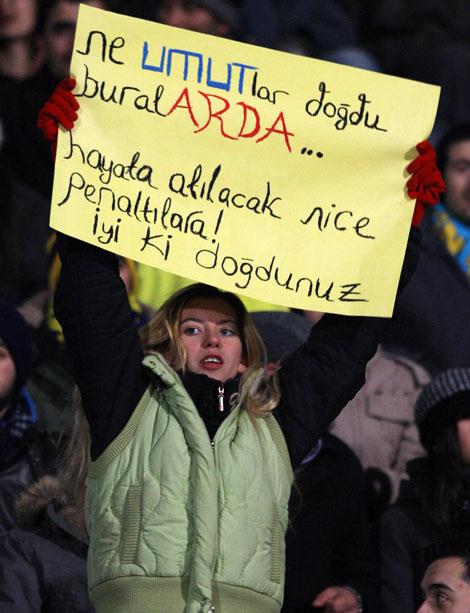 ne UMUTlar doğdu
buralARDA...
hayata atılacak nice
penaltılara!
iyi ki doğdunuz